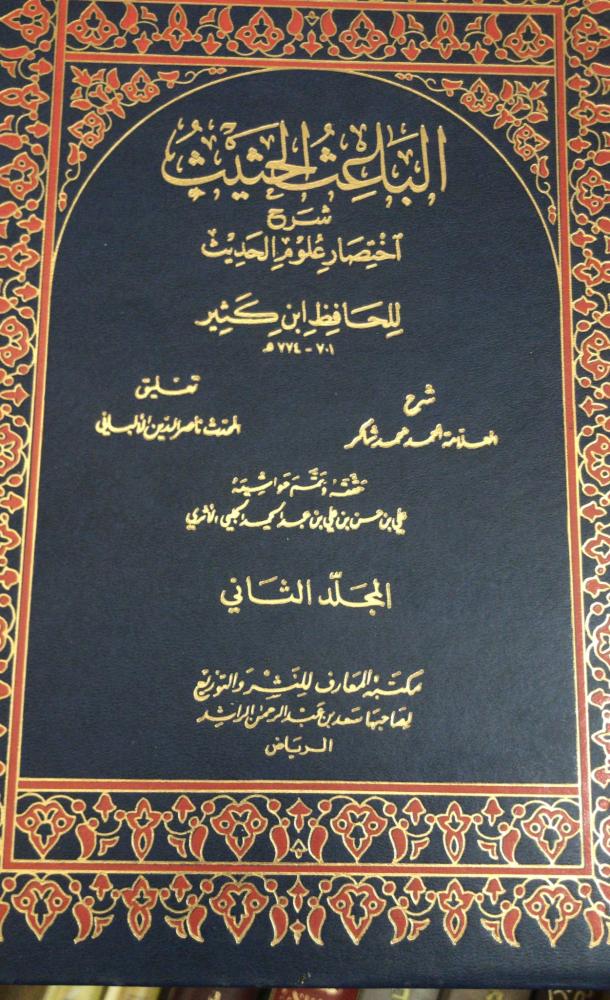 البَاعِثُ الحَثِيثُ
شَرح
اخْتِصَار عُلُومِ الحَدِيث
لِلحَافِظِ ابْنِ كَثِير
٧٠١ - ٧٧٤ هـ
شرح
العلامة أحمد محمد شاكر
تعليق
المحدث ناصر الدين الألباني
حققه وتمم حواشيه
علي بن حسن بن علي بن عبد الحميد الحلبي الأثري
المجلّد الثاني
مكتبة المعارف للنشر والتوزيع
لصاحبها سعد بن عبد الرحمن الراشد
الرياض